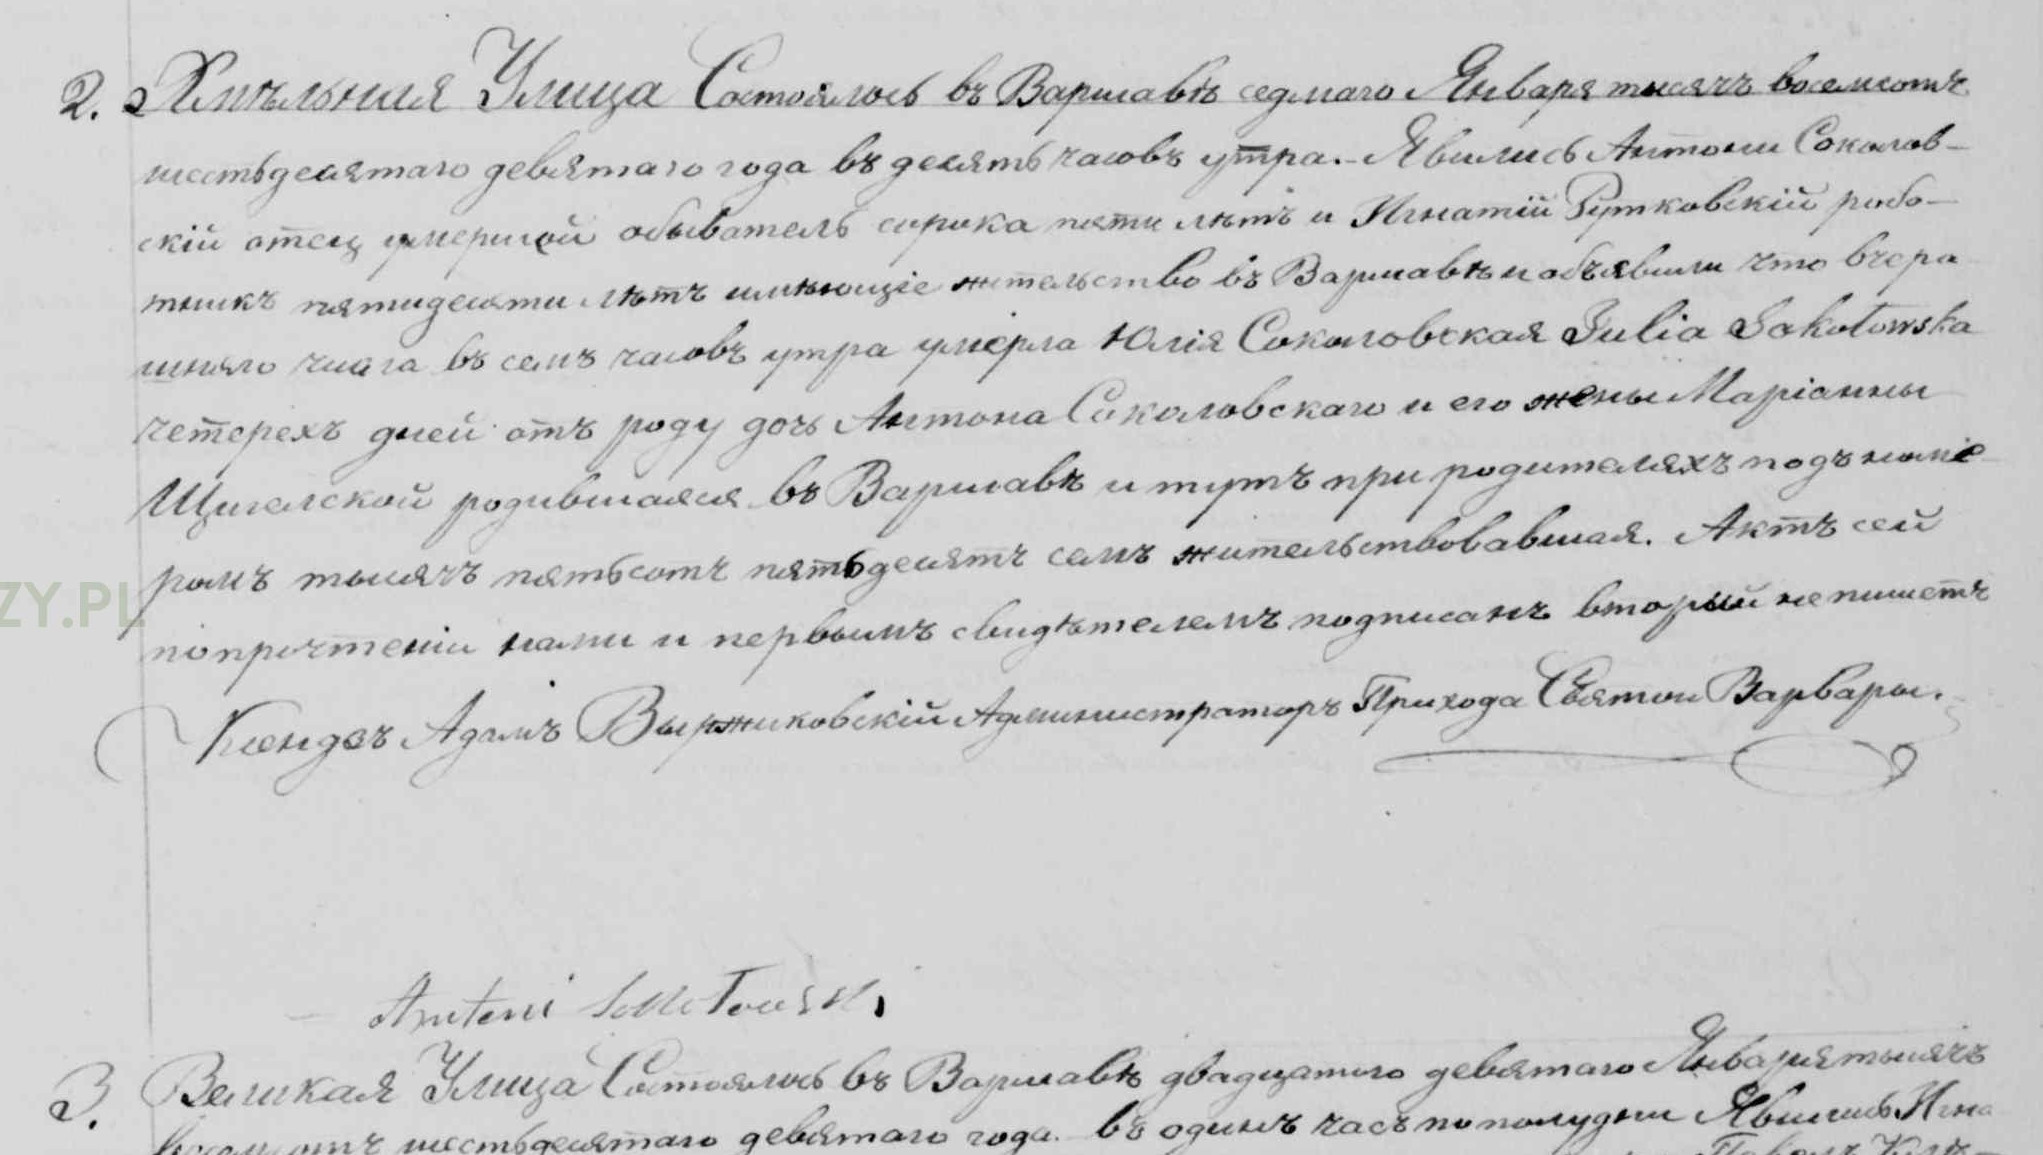 2. Хмѣльния Улица Состоялось въ Варшавѣ седмаго Января тысячъ восемсотъ
шестьдесятаго девятаго года въ десять часовъ утра. – Явились Антони Соколов-
скій отец умершой обыватель сорока пяти лѣтъ и Игнатій Рутковскій рабо-
тникъ пятидесяти лѣтъ имѣющіе жительство въ Варшавѣ и объявили что вчера
шняго числа въ семъ часовъ утра умерла Юлія Соколовская Julia Sokołowska
четерехъ дней отъ роду дочь Антона Соколовскаго и его жены Маріанны
Щигелской родившаяся въ Варшавѣ и тутъ при родителяхъ подъ номе-
ромъ тысячъ пятьсотъ пятьдесятъ семъ жительствовавшая. Актъ сей
по прочтеніи нами и первымъ свидѣтелемъ подписанъ вторый не пишетъ
Ксендзъ Адамъ Выржиковскій Администраторъ Прихода Святои Варвары.
Antoni Sokołowski
3. Великая Улица Состоялось въ Варшавѣ двадцатого девятаго Января тысячъ
восемсотъ шестьдесятаго девятаго года въ одинъ часъ по полудни Явились Игна
ZY.PL